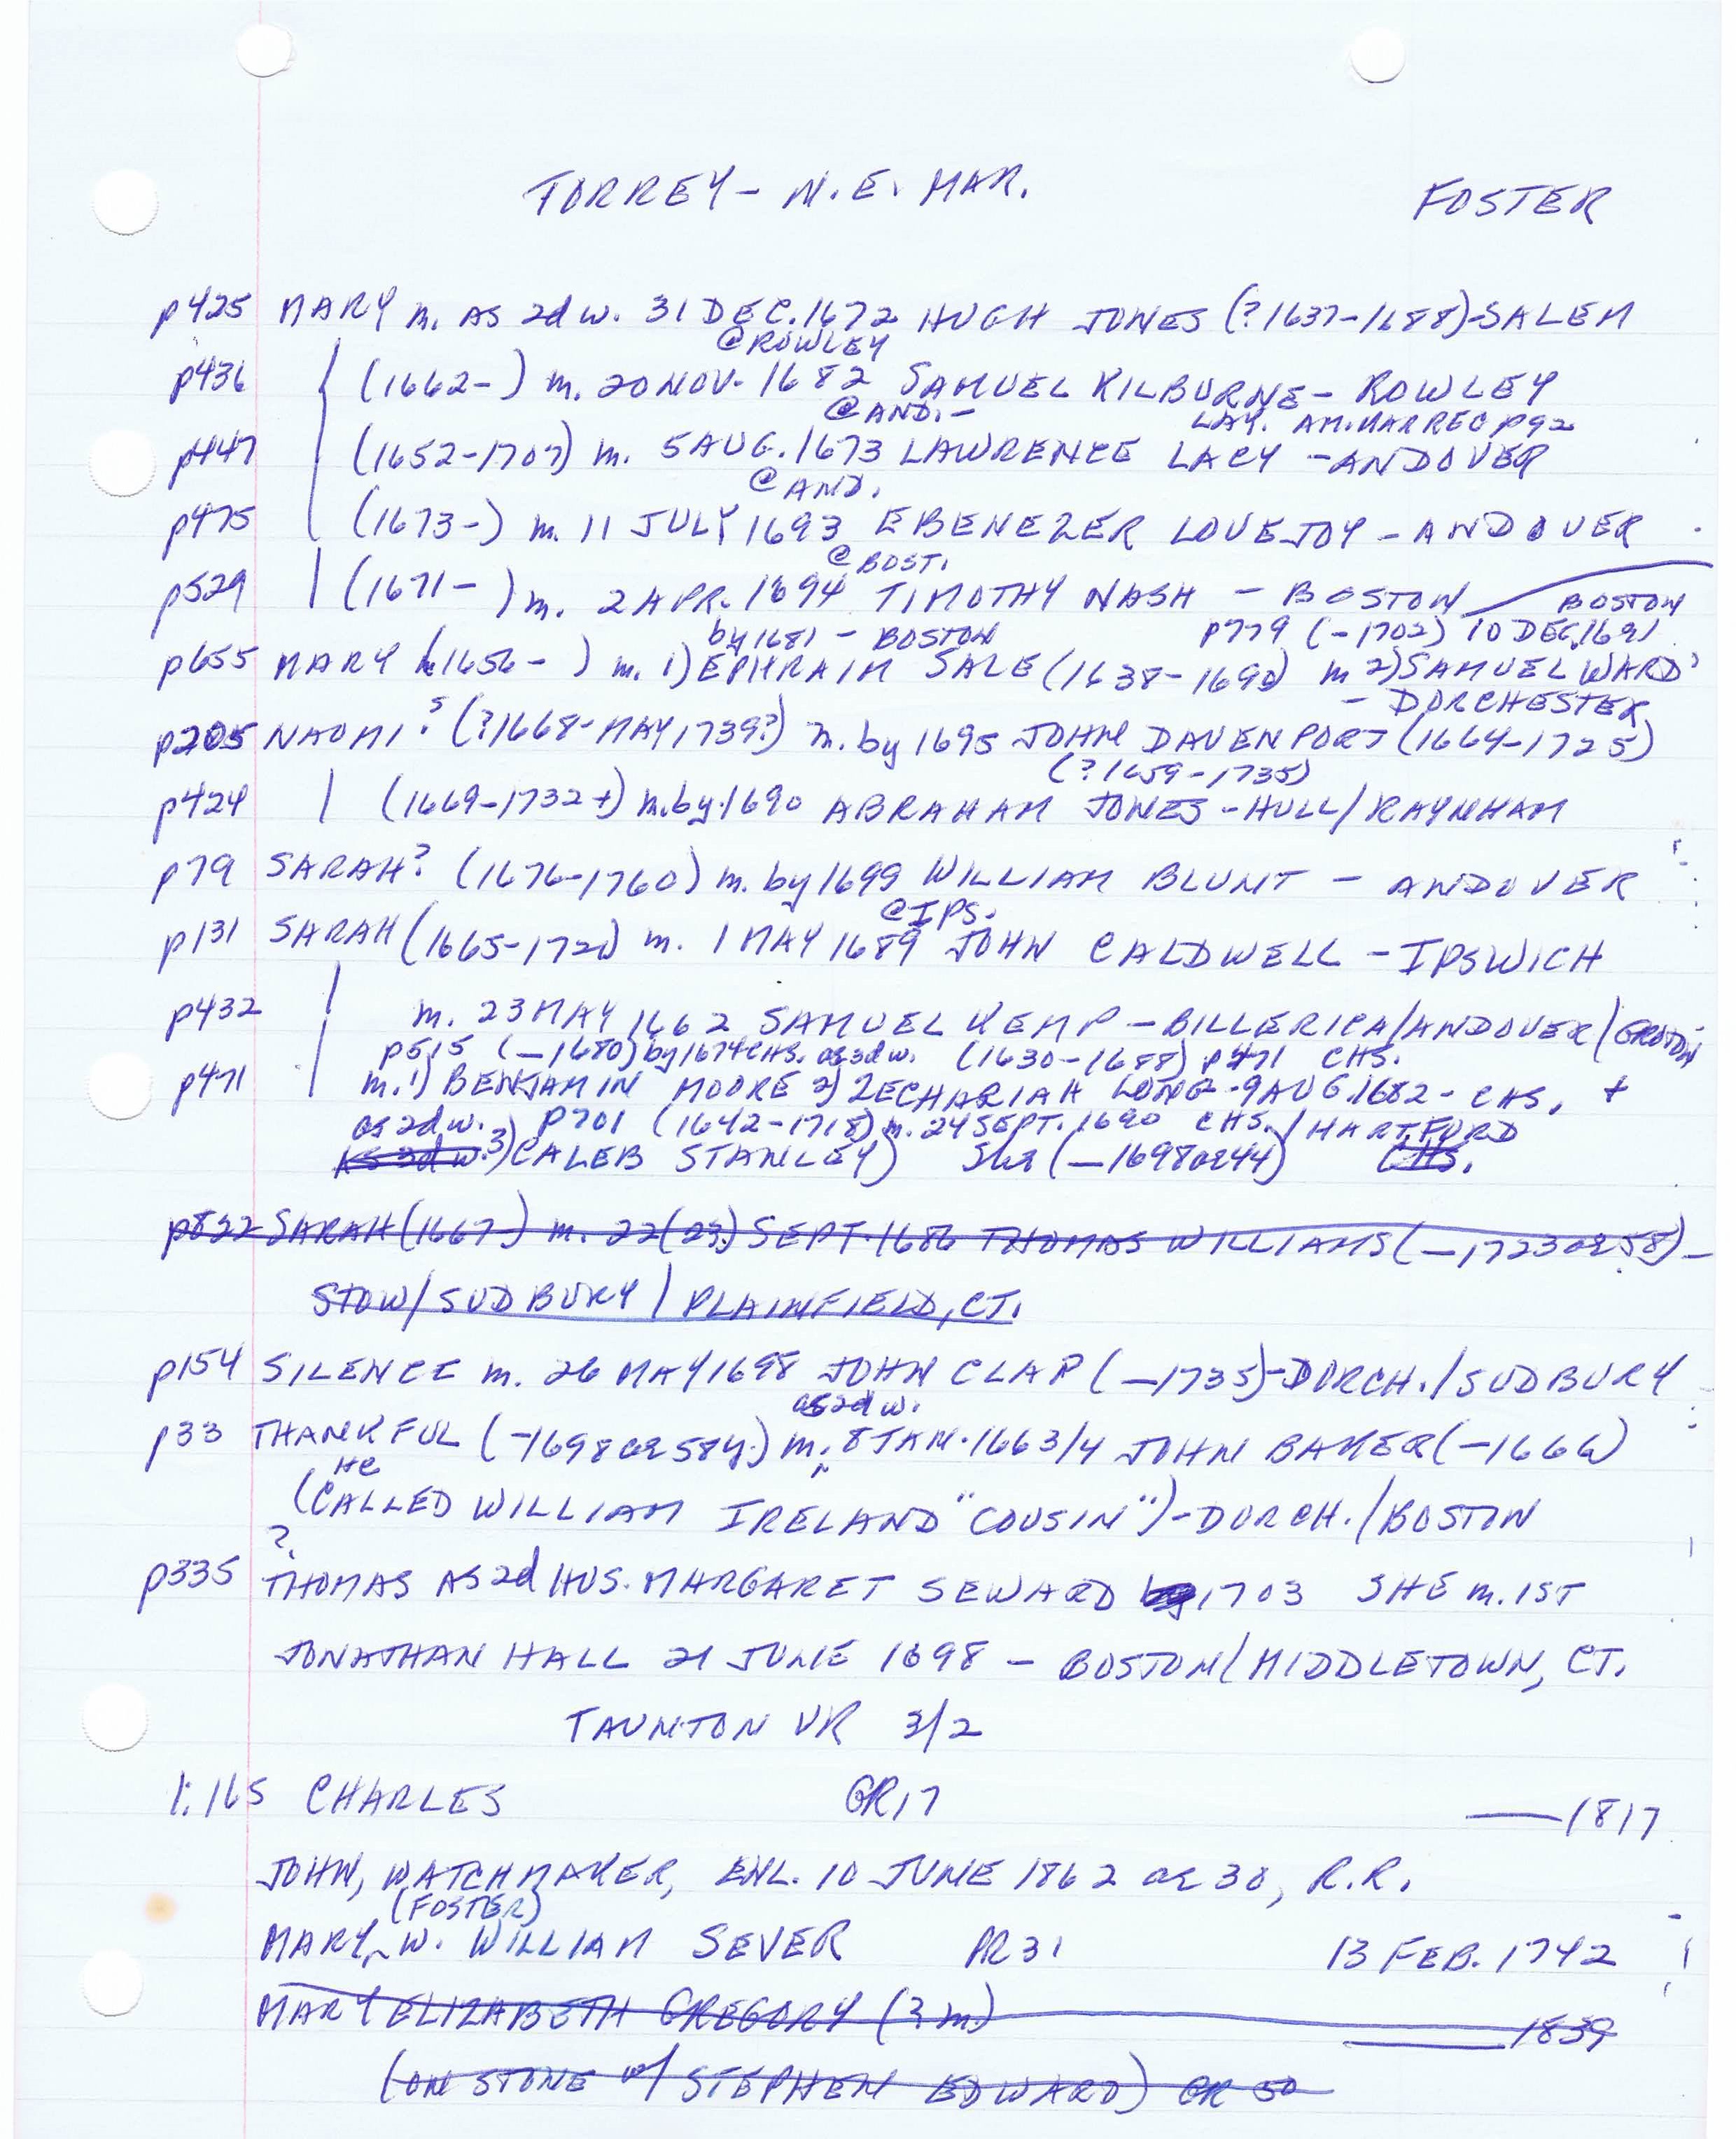 TORREY - N.E. MAR. FOSTER
p425 MARY m. AS 2d w. 31 DEC. 1672 HUGH JONES (?1637-1688)-SALEM
@ROWLEY
p436 (1662- ) m. 20 NOV. 1682 SAMUEL KILBURNE - ROWLEY
@AND. - LAY. AM. MAR REC p92
p447 (1652-1707) m. 5 AUG. 1673 LAWRENCE LACY - ANDOVER
@AND.
p475 (1673-) m. 11 JULY 1693 EBENEZER LOVEJOY - ANDOVER
@BOST.
p529 (1671- ) m. 2 APR. 1694 TIMOTHY NASH - BOSTON BOSTON
by 1681 - BOSTON p779 (-1702) 10 DEC. 1691
p655 MARY (1656- ) m. 1) EPHRAIM SALE (1638-1690) m 2) SAMUEL WARD
- DORCHESTER
p205 NAOMI? (?1668-MAY 1739?) m. by 1695 JOHN DAVENPORT (1664-1725)
(?1659-1735)
p424 (1669-1732+) m. by 1690 ABRAHAM JONES - HULL/RAYNHAM
p79 SARAH? (1676-1760) m. by 1699 WILLIAM BLUNT - ANDOVER
@IPS.
p131 SARAH (1665-172) m. 1 MAY 1689 JOHN CALDWELL - IPSWICH
p432 m. 23 MAY 1662 SAMUEL KEMP - BILLERICA/ANDOVER/GROTON
p515 (-1680) by 1674 CHS. as 3d w. (1630-1688) p471 CHS.
p471 m. 1) BENJAMIN MOORE 2) ZECHARIAH LONG - 9 AUG. 1682 - CHS. +
as 2d w. p701 (1642-1718) m. 24 SEPT. 1690 CHS./HARTFORD
AS 3d w. 3) CALEB STANLEY) She (-1698 ae 44) CHS.
p822 SARAH (1667-) m. 22(23?) SEPT. 1686 THOMAS WILLIAMS (-1723 ae 58) -
STOW/SUDBURY/PLAINFIELD, CT.
p154 SILENCE m. 26 MAY 1698 JOHN CLAP (-1735)-DORCH./SUDBURY
as 2d w.
p33 THANKFUL (-1698 ae 58 y.) m. 8 JAN. 1663/4 JOHN BAKER (-1666)
He
(CALLED WILLIAM IRELAND "COUSIN")-DORCH./BOSTON
?
p335 THOMAS AS 2d HUS. MARGARET SEWARD by 1703 SHE m. 1ST
JONATHAN HALL 21 JUNE 1698 - BOSTON/MIDDLETOWN, CT.
TAUNTON VR 3/2
1:165 CHARLES GR17 — 1817
JOHN, WATCHMAKER, ENL. 10 JUNE 1862 ae 30, R.R.
(FOSTER)
MARY, W. WILLIAM SEVER PR31 13 FEB. 1742
MARY ELIZABETH GREGORY (? m) — 1839
(ON STONE w/ STEPHEN EDWARD) GR 50